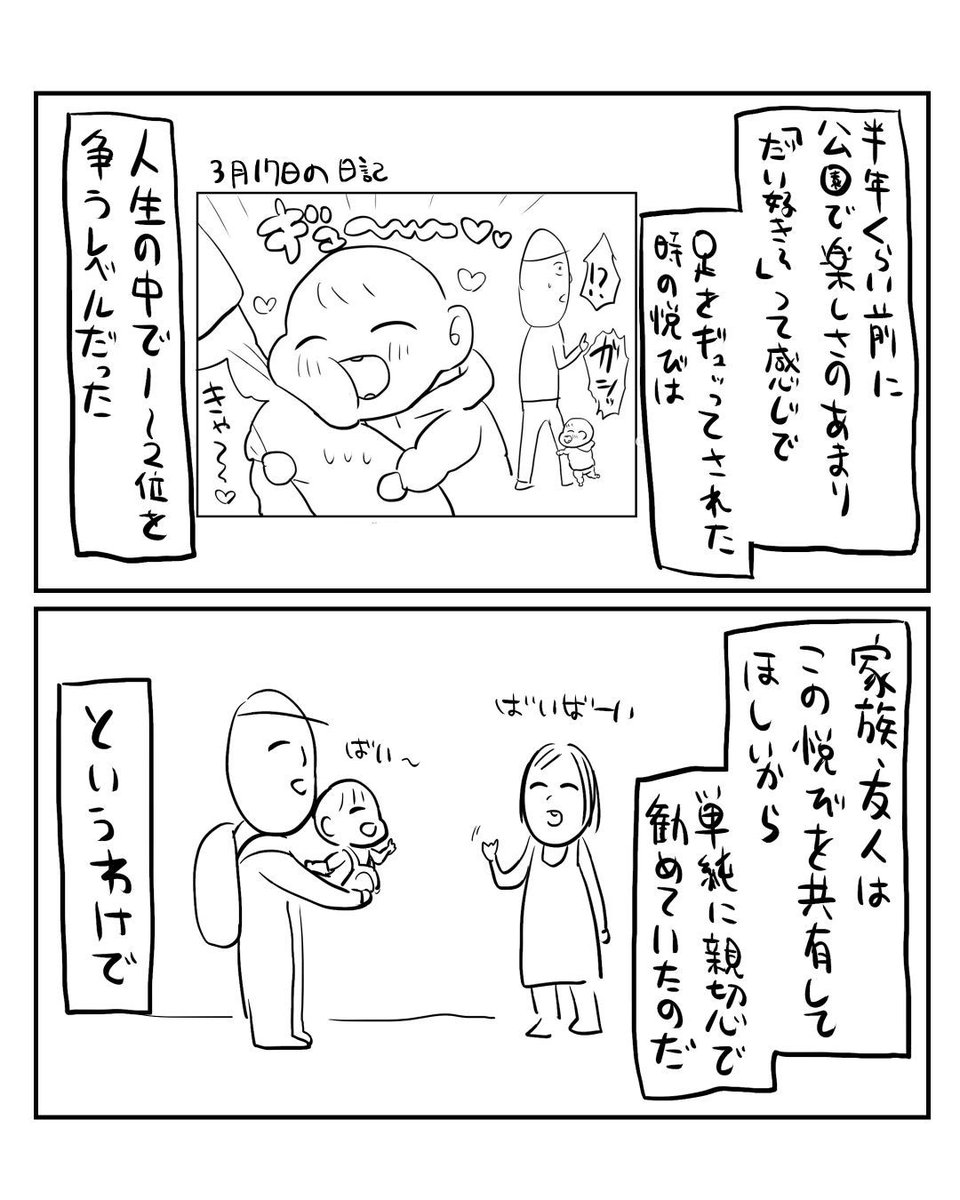 半年くらい前に
公園で楽しさのあまり
「だい好き〜」って感じで
足をギュッってされた
時の悦びは
3月17日の日記
!?
ガシッ
ギュ〜〜〜♡♡
きゃて〜♡
人生の中で1〜2位を
争うレベルだった
家族、友人は
この悦びを共有して
ほしいから
単純に親切心で
勧めていたのだ
ばいばーい
ばい〜
というわけで